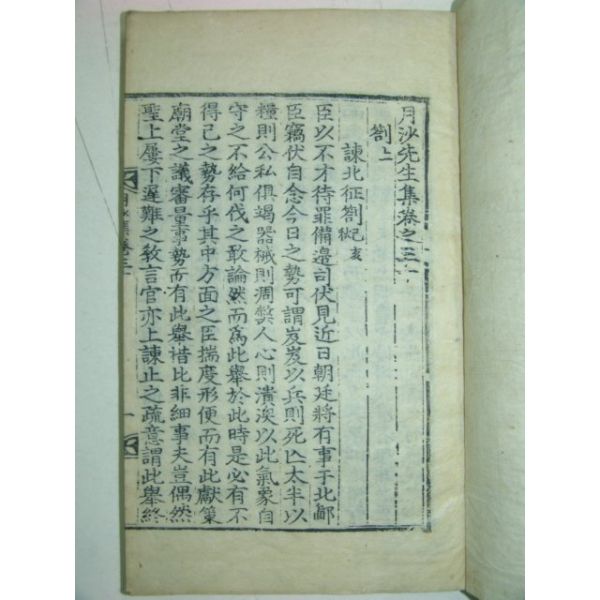 月沙先生集卷之三十
劄上
諫北征劄 己亥
臣以不才待罪備邊司伏見近日朝廷將有事于北鄙
臣竊伏自念今日之勢可謂岌岌以兵則死亡太半以
糧則公私俱竭器械則凋弊人心則潰渙以此氣象自
守之不給何伐之敢論然而爲此擧於此時是必有不
得已之勢存乎其中方面之臣揣度形便而有此獻策
廟堂之議審量事勢而有此擧措比非細事夫豈偶然
聖上屢下遲難之敎言官亦上諫止之疏意謂此擧終
月沙集卷三十
一